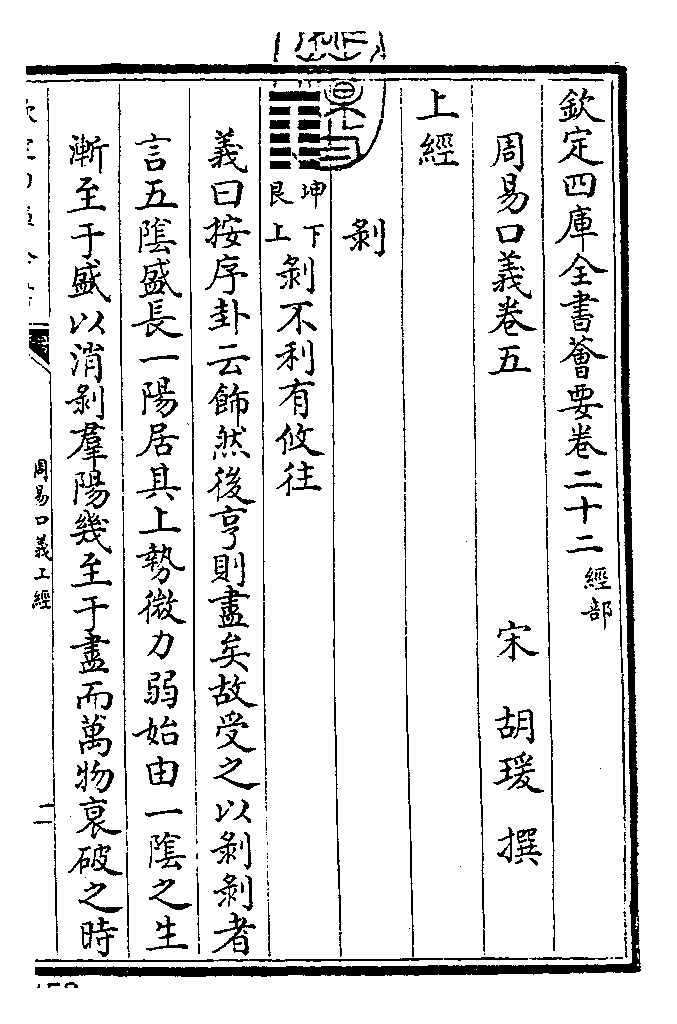 欽定四庫全書薈要卷二十二 經部
周易口義卷五 宋 胡瑗 撰
上經
剝
坤下
艮上
剝不利有攸往
義曰按序卦云飾然後亨則盡矣故受之以剝剝者
言五隂盛長一陽居其上勢微力弱始由一隂之生
漸至于盛以消剝羣陽幾至于盡而萬物衰破之時
周易口義上經